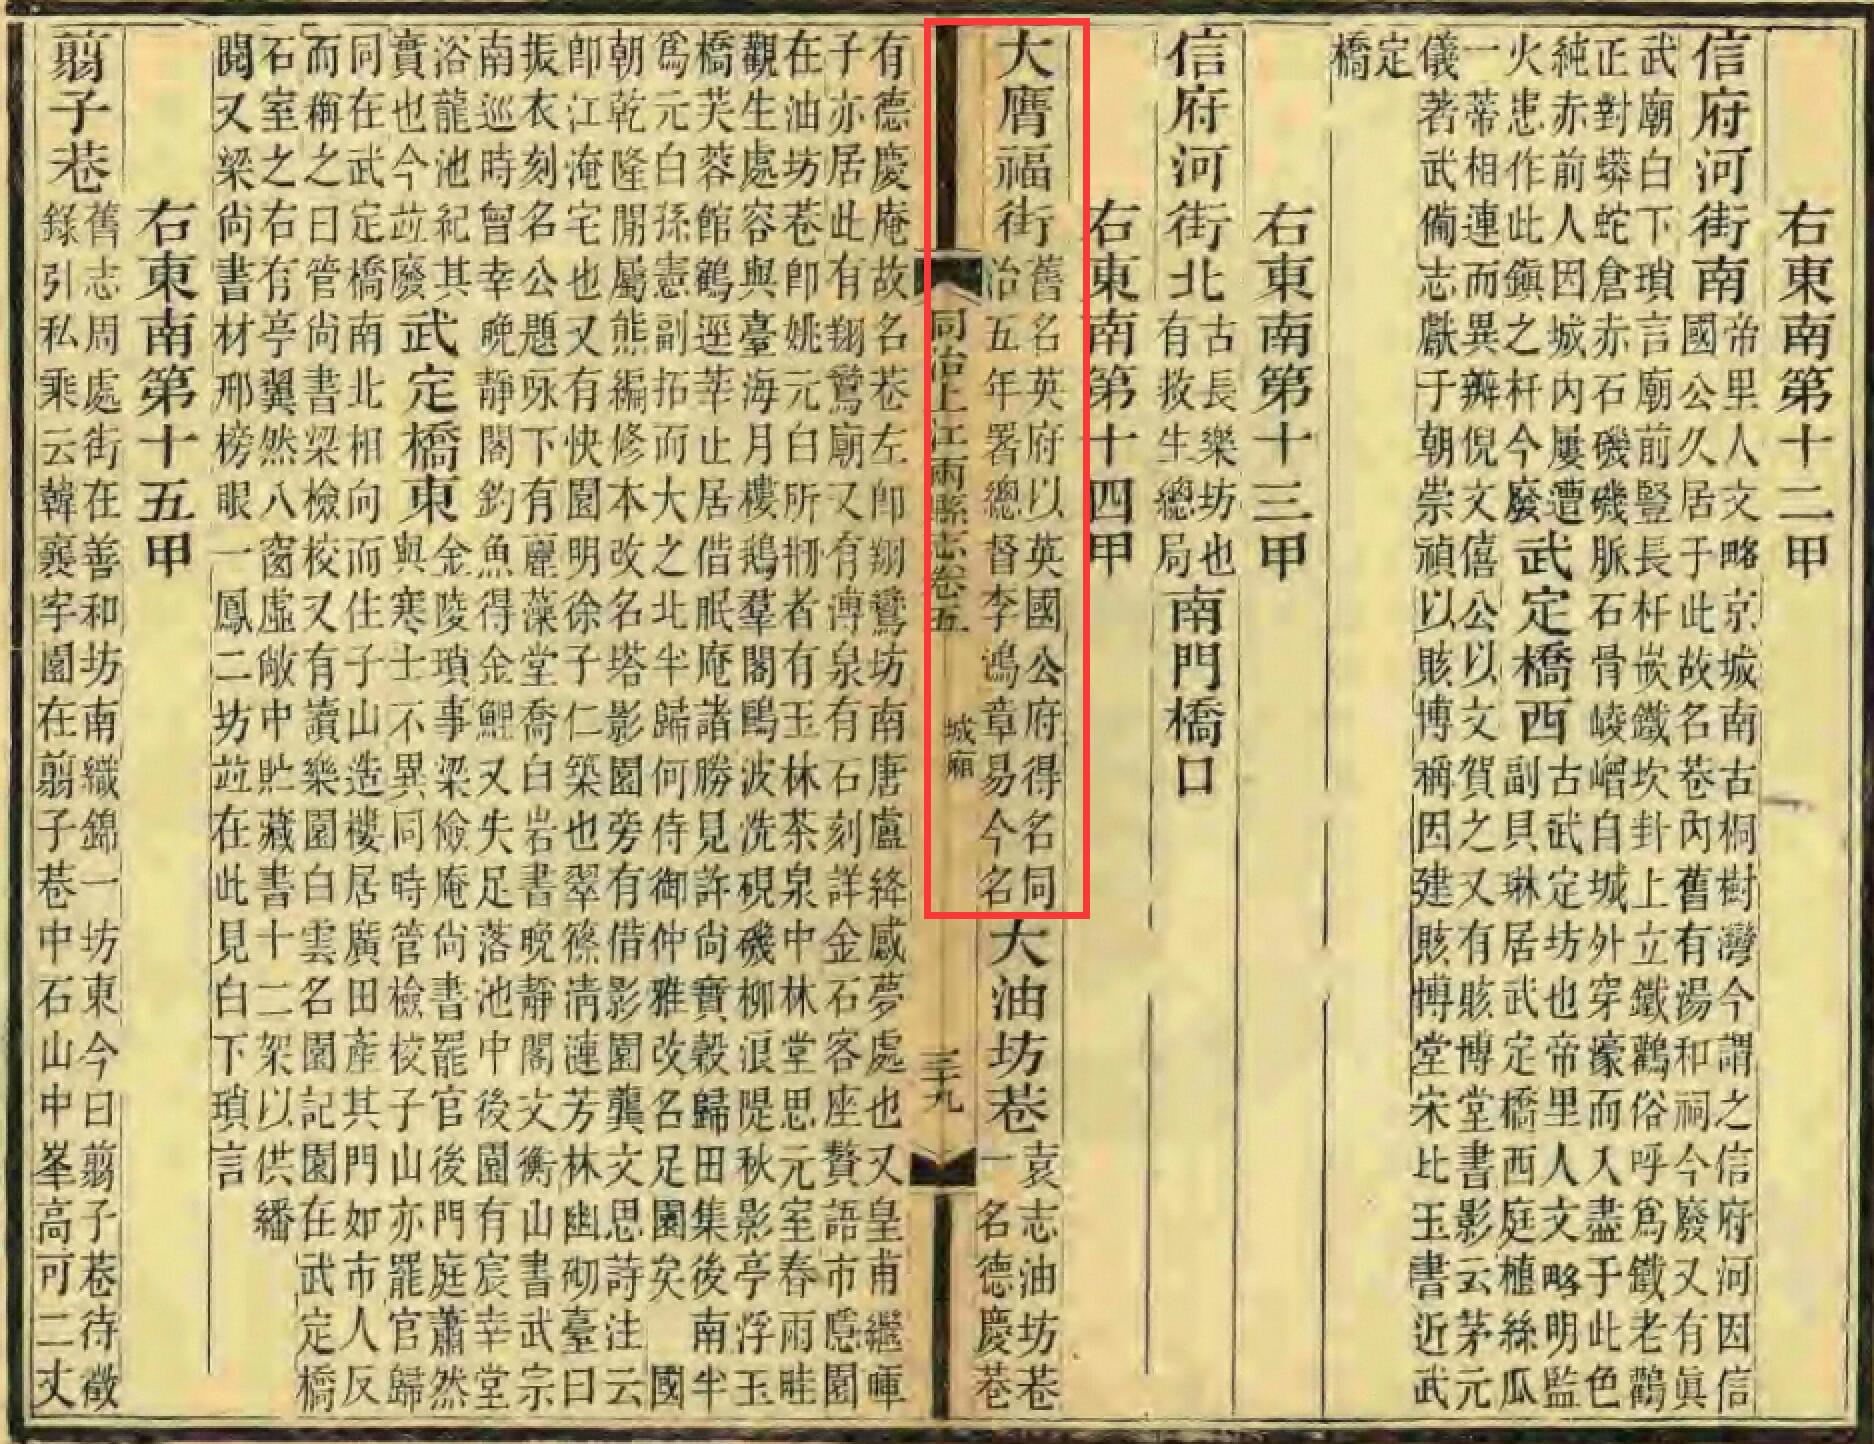 右東南第十二甲
信府河街南
帝里人文略京城南古桐樹灣今謂之信府河因信
國公久居于此故名巷內舊有湯和祠今廢又有眞
武廟白下瑣言廟前豎長杆嵌鐵坎卦上立鐵鸛俗呼爲鐵老鸛
正對蟒蛇倉赤石磯磯脈石骨崚嶒自城外穿濠而入盡于此色
純赤前人因城內屢遭
火患作此鎮之杆今廢
武定橋西
古武定坊也帝里人文略明監
副貝琳居武定橋西庭植絲瓜
一蒂相連而異瓣倪文僖公以文賀之又有賅博堂書影云茅元
儀著武備志獻于朝崇禎以賅博稱因建賅博堂宋比玉書近武
定
橋
右東南第十三甲
信府河街北
古長樂坊也
有救生總局
南門橋口
右東南第十四甲
大膺福街
舊名英府以英國公府得名同
治五年署總督李鴻章易今名
大油坊巷
袁志油坊巷
一名德慶巷
同治上江兩縣志卷五
城廂
三十九
有德慶庵故名巷左卽翔鸞坊南唐盧絳感夢處也又皇甫繼暉
子亦居此有翔鸞廟又有溥泉有石刻詳金石客座贅語市隱園
在油坊巷卽姚元白所捌者有玉林茶泉中林堂思元室春雨畦
觀生處容與臺海月樓鵝羣閣鷗波洗硯磯柳浪隄秋影亭浮玉
橋芙蓉館鶴逕莘止居借眠庵諸勝見許尚寶穀歸田集後南半
爲元白孫憲副拓而大之北半歸何侍御仲雅改名足園矣 國
朝乾隆閒屬熊編修本改名塔影園旁有借影園龔文思詩注云
卽江淹宅也又有快園明徐子仁築也翠篠淸漣芳林幽砌臺曰
振衣刻名公題咏下有麗藻堂喬白岩書晚靜閣文衡山書武宗
南巡時曾幸晚靜閣釣魚得金鯉又失足落池中後園有宸幸堂
浴龍池紀其
實也今竝廢
武定橋東
金陵瑣事梁儉庵尚書罷官後門庭蕭然
與寒士不異同時管檢校子山亦罷官歸
同在武定橋南北相向而住子山造樓居廣田產其門如市人反
而稱之曰管尚書梁檢校又有讀樂園白雲名園記園在武定橋
石室之右有亭翼然八窗虛敞中貯藏書十二架以供繙
閱又梁尚書材邢榜眼一鳳二坊竝在此見白下瑣言
右東南第十五甲
翦子巷
舊志周處街在善和坊南織錦一坊東今曰翦子巷待徵
錄引私乘云韓襄字園在翦子巷中石山中峯高可二丈